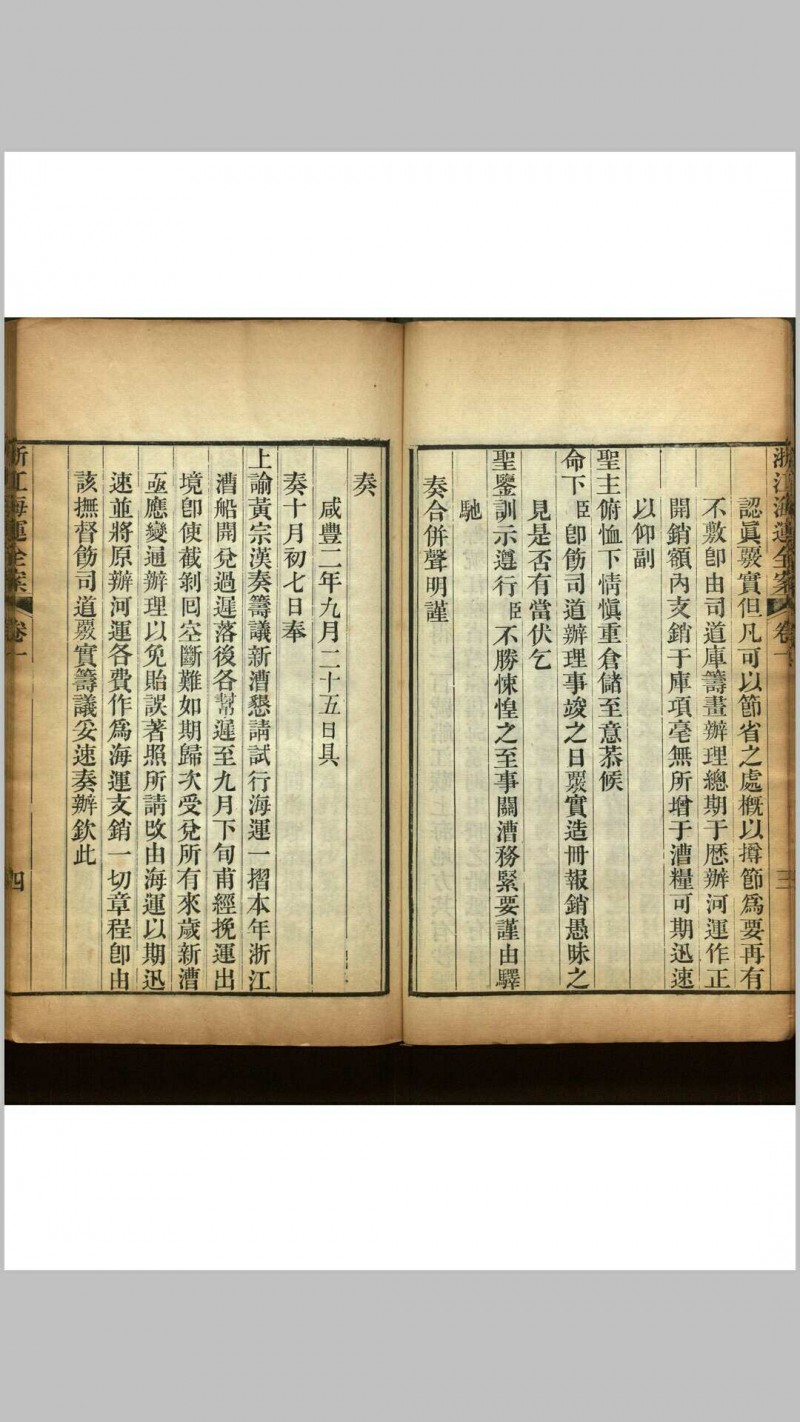 浙江海運全案 卷一 三
認眞覈實但凡可以節省之處槪以撙節爲要再有
不敷卽由司道庫籌畫辦理總期于厯辦河運作正
開銷額內支銷于庫項毫無所增于漕糧可期迅速
以仰副
聖主俯恤下情愼重倉儲至意恭候
命下臣卽飭司道辦理事竣之日覈實造冊報銷愚昧之
見是否有當伏乞
聖鑒訓示遵行臣不勝悚惶之至事關漕務緊要謹由驛
馳
奏合併聲明謹
奏
咸豐二年九月二十五日具
奏十月初七日奉
上諭黃宗漢奏籌議新漕懇請試行海運一摺本年浙江
漕船開兌過遲落後各幫遲至九月下旬甫經挽運出
境卽使截剝回空斷難如期歸次受兌所有來歲新漕
亟應變通辦理以免貽誤著照所請改由海運以期迅
速並將原辦河運各費作爲海運支銷一切章程卽由
該撫督飭司道覈實籌議妥速奏辦欽此
浙江海運全案 卷一 四